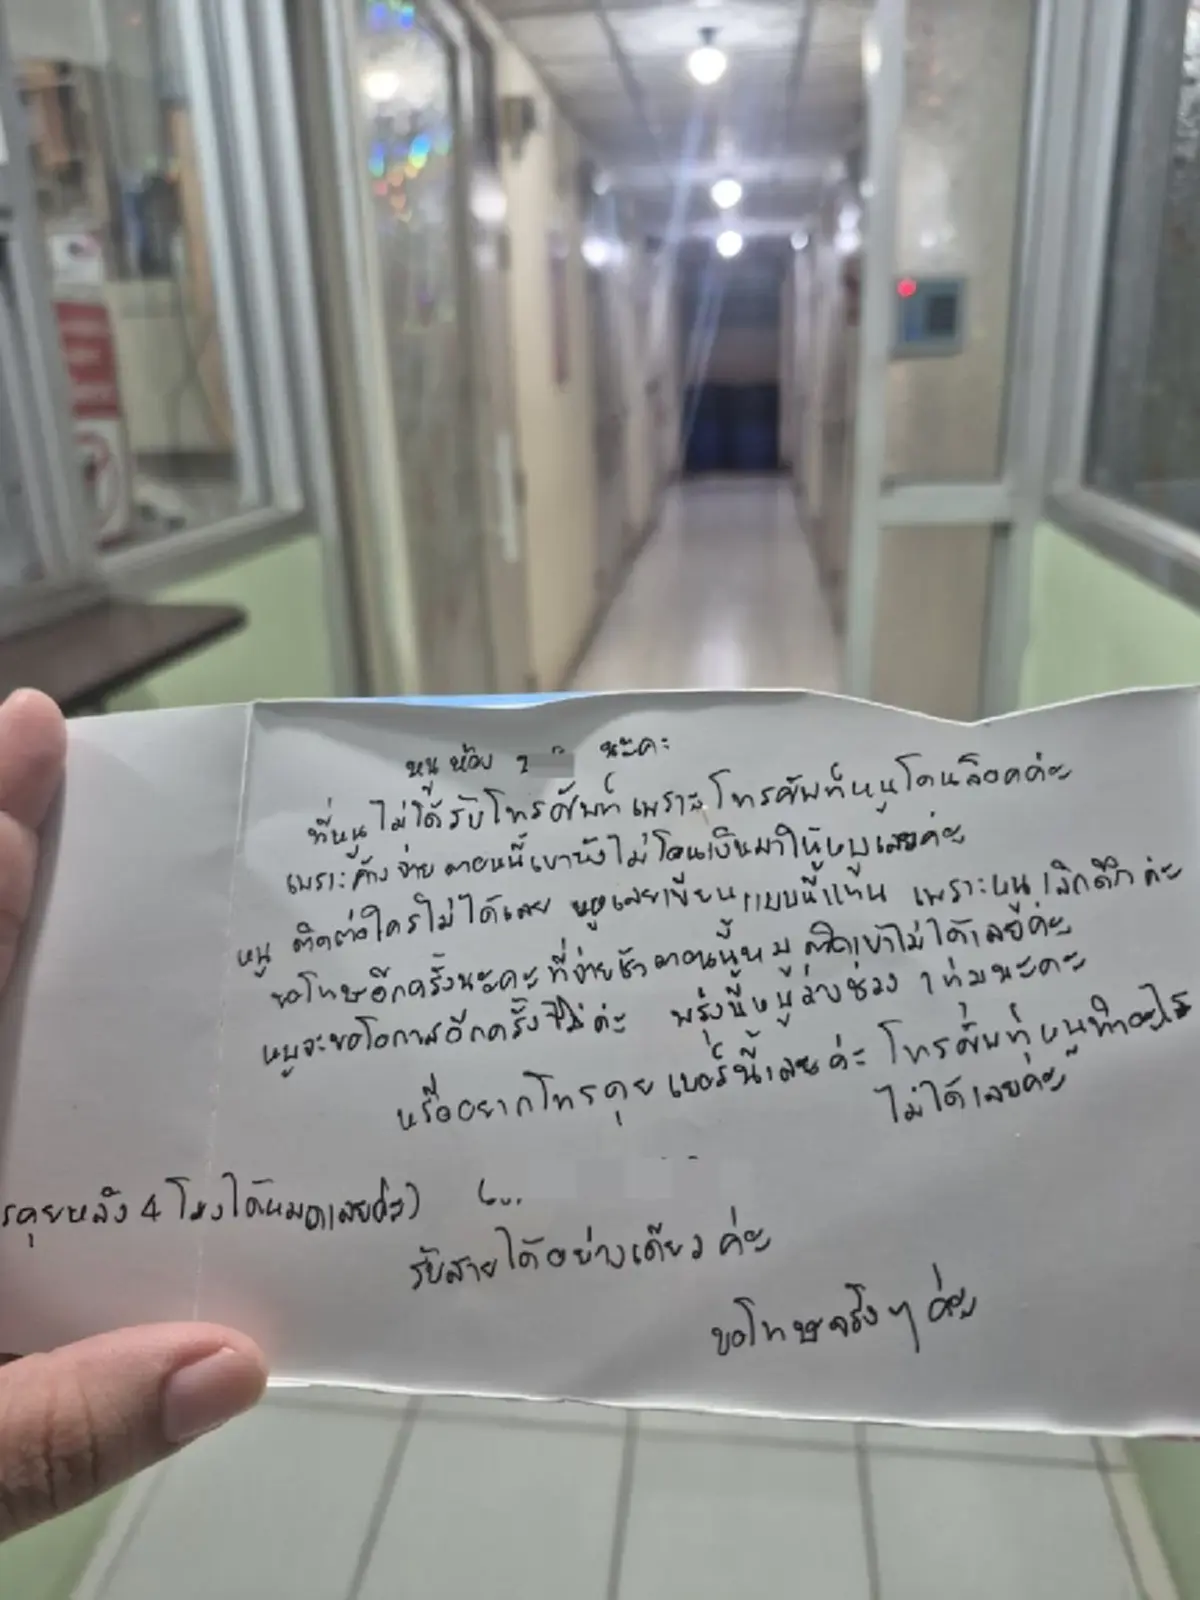 หนู ห้อง 2 นะคะ
ที่หนูไม่ได้รับโทรศัพท์เพราะโทรศัพท์หนูโดนล็อคค่ะ
เพราะค้างจ่าย ตอนนี้เขายังไม่โอนเงินมาให้หนูเลยค่ะ
หนู ติดต่อใครไม่ได้เลย หนูเลยเขียนแบบนี้แทน เพราะหนูเลิกดึกค่ะ
ขอโทษอีกครั้งนะคะที่จ่ายช้า ตอนนี้หนูติดเขาไม่ได้เลยค่ะ
หนูจะขอโอกาสอีกครั้งได้ไม่ค่ะ พรุ่งนี้หนูว่างช่วง 1 ทุ่มนะคะ
หรืออยากโทรคุย เบอร์นี้เลยค่ะ โทรศัพท์หนูทำอะไร
ไม่ได้เลยค่ะ
รคุยหลัง 4 โมงได้หมดเลยค่ะ)
รับสายได้อย่างเดียวค่ะ
ขอโทษจริงๆ ค่ะ